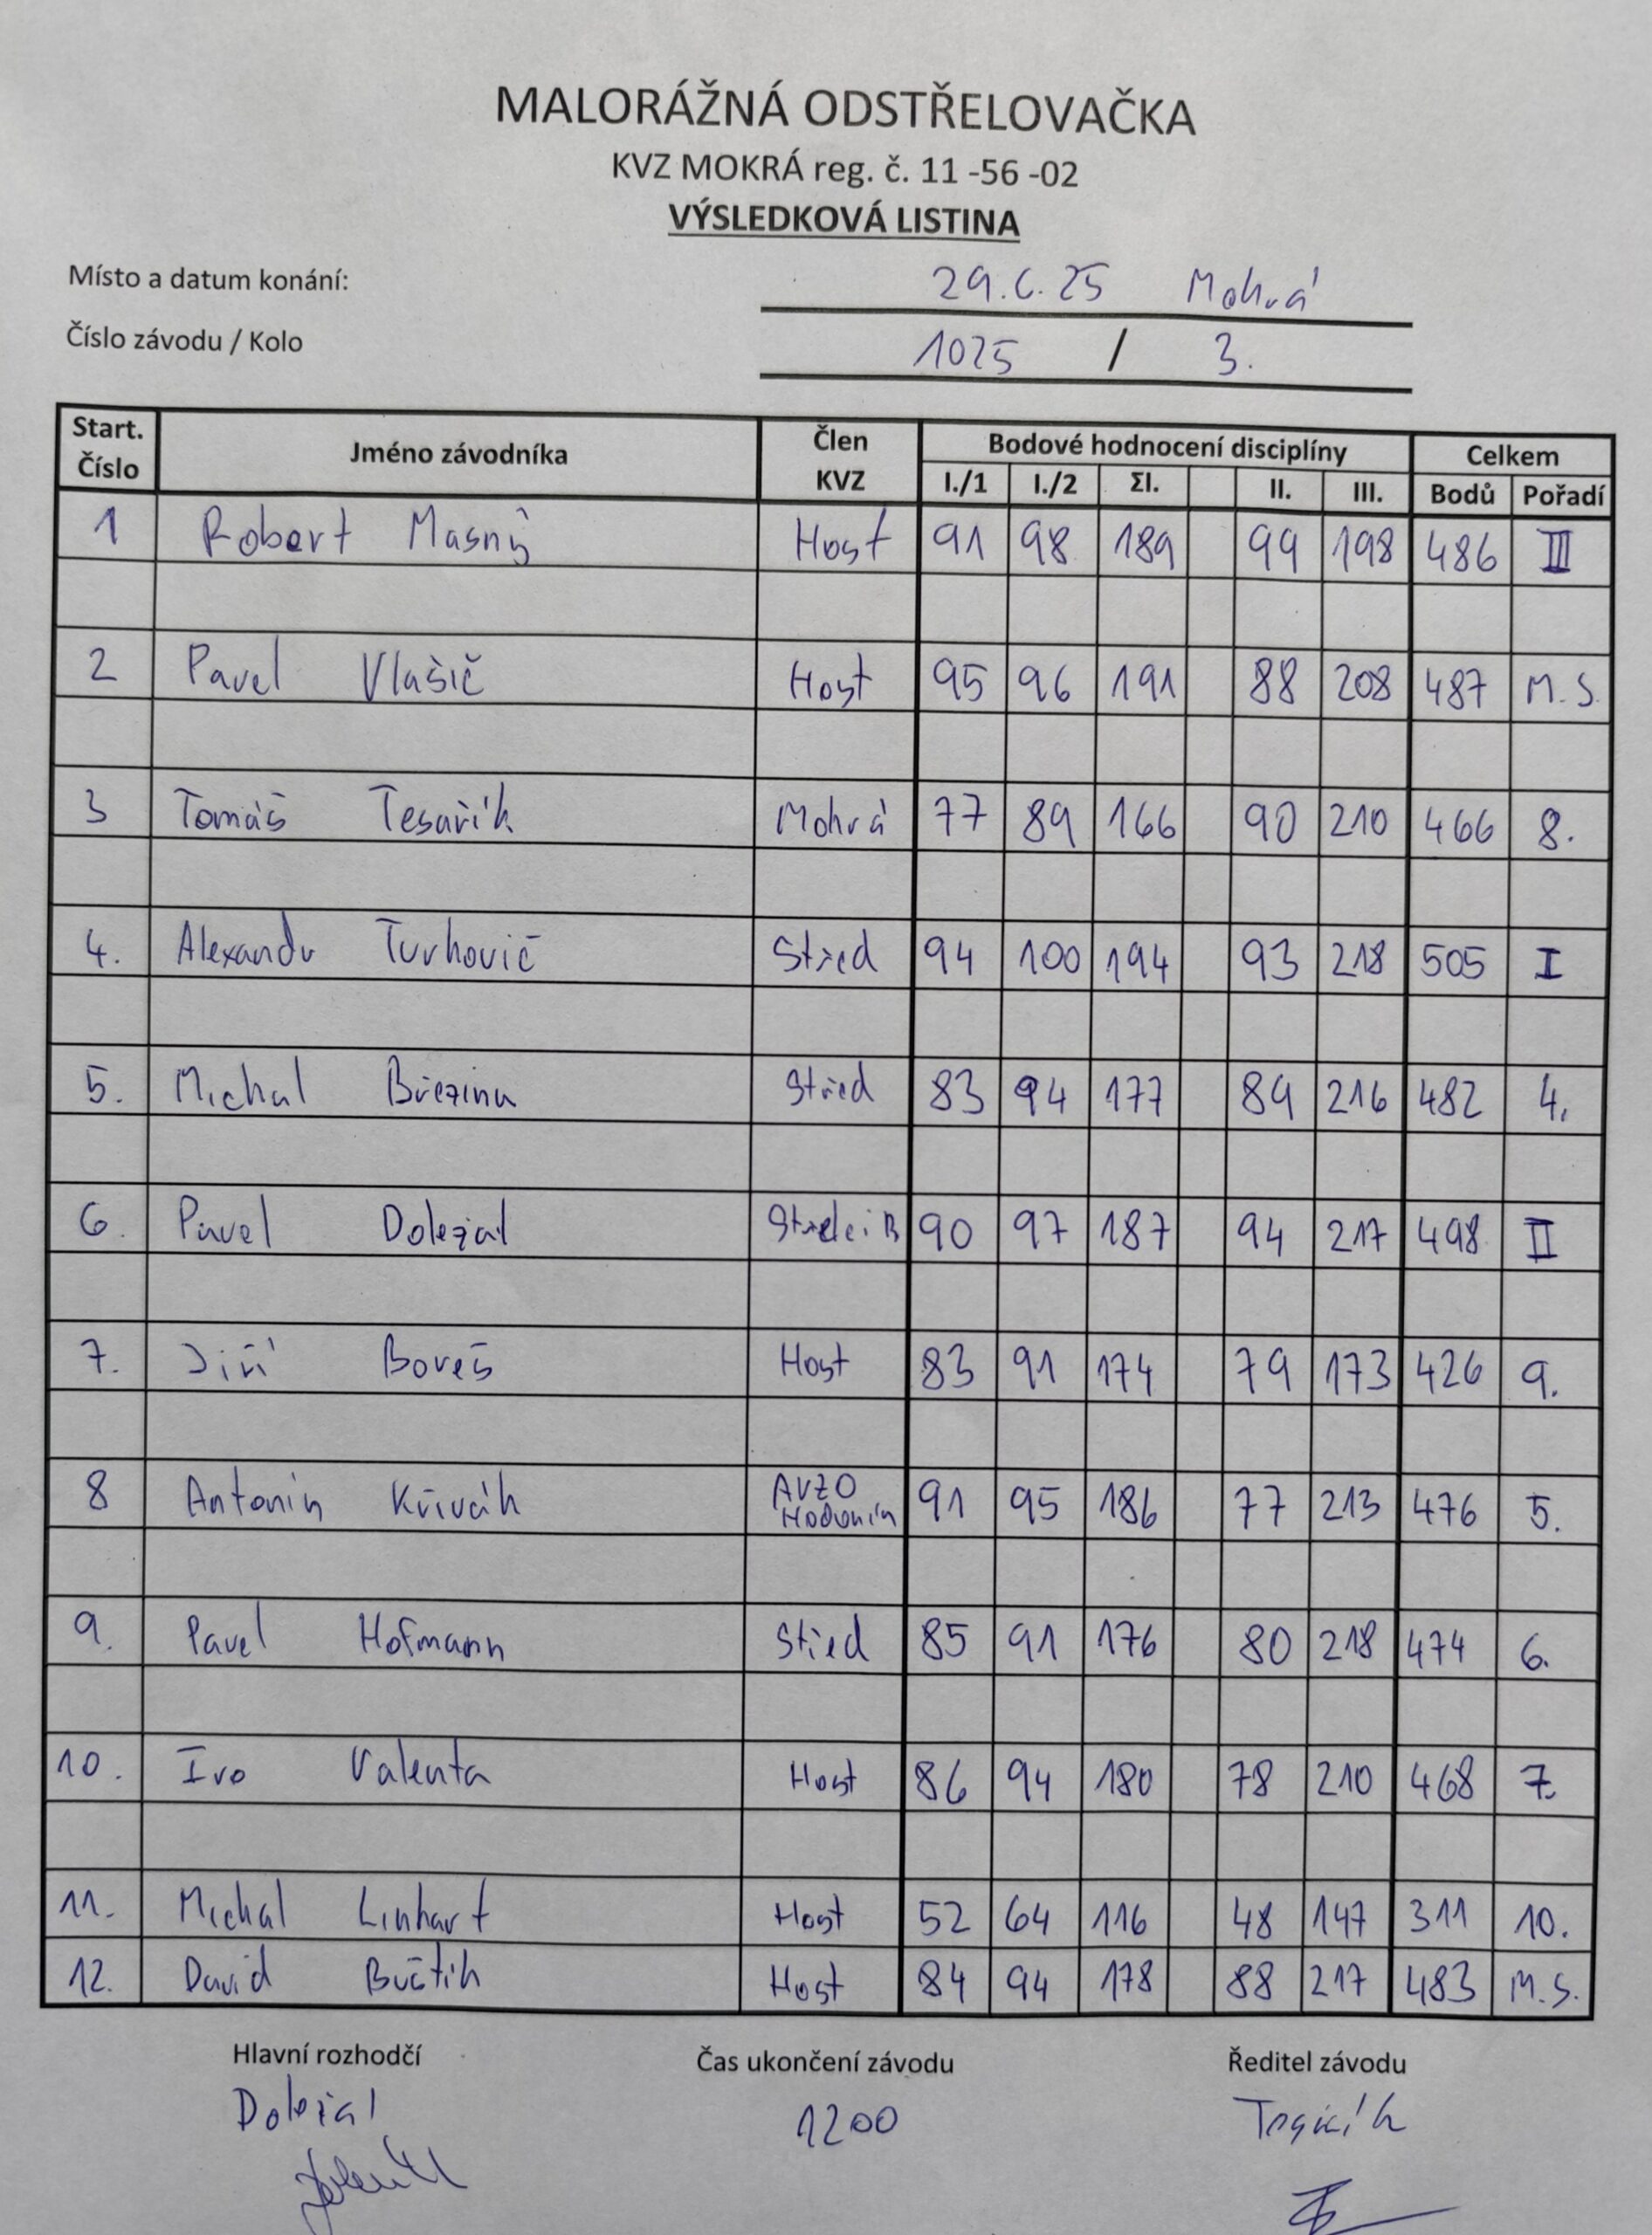 MALORÁŽNÁ ODSTŘELOVAČKA
KVZ MOKRÁ reg. č. 11 -56 -02
VÝSLEDKOVÁ LISTINA
Místo a datum konání: 29.6.25 Mokrá
Číslo závodu / Kolo 1025 / 3.
Start. Číslo Jméno závodníka Člen KVZ Bodové hodnocení disciplíny Celkem
I./1 I./2 ΣI. II. III. Bodů Pořadí
1 Robert Masný Host 91 98 189 99 198 486 III
2 Pavel Vlašič Host 95 96 191 88 208 487 M.S.
3 Tomáš Tesařík Mokrá 77 89 166 90 210 466 8.
4. Alexandr Turkovič Střed 94 100 194 93 218 505 I
5. Michal Březina Střed 83 94 177 89 216 482 4.
6. Pavel Doležal 90 97 187 94 217 498 II
7. Jiří Boreš Host 83 91 174 79 173 426 9.
8 Antonín Křivák AVZO Hodonín 91 95 186 77 213 476 5.
9. Pavel Hofmann Střed 85 91 176 80 218 474 6.
10. Ivo Valenta Host 86 94 180 78 210 468 7.
11. Michal Linhart Host 52 64 116 48 147 311 10.
12. David Bučtík Host 84 94 178 88 217 483 M.S.
Hlavní rozhodčí Čas ukončení závodu Ředitel závodu
Doležal 1200 Tesařík